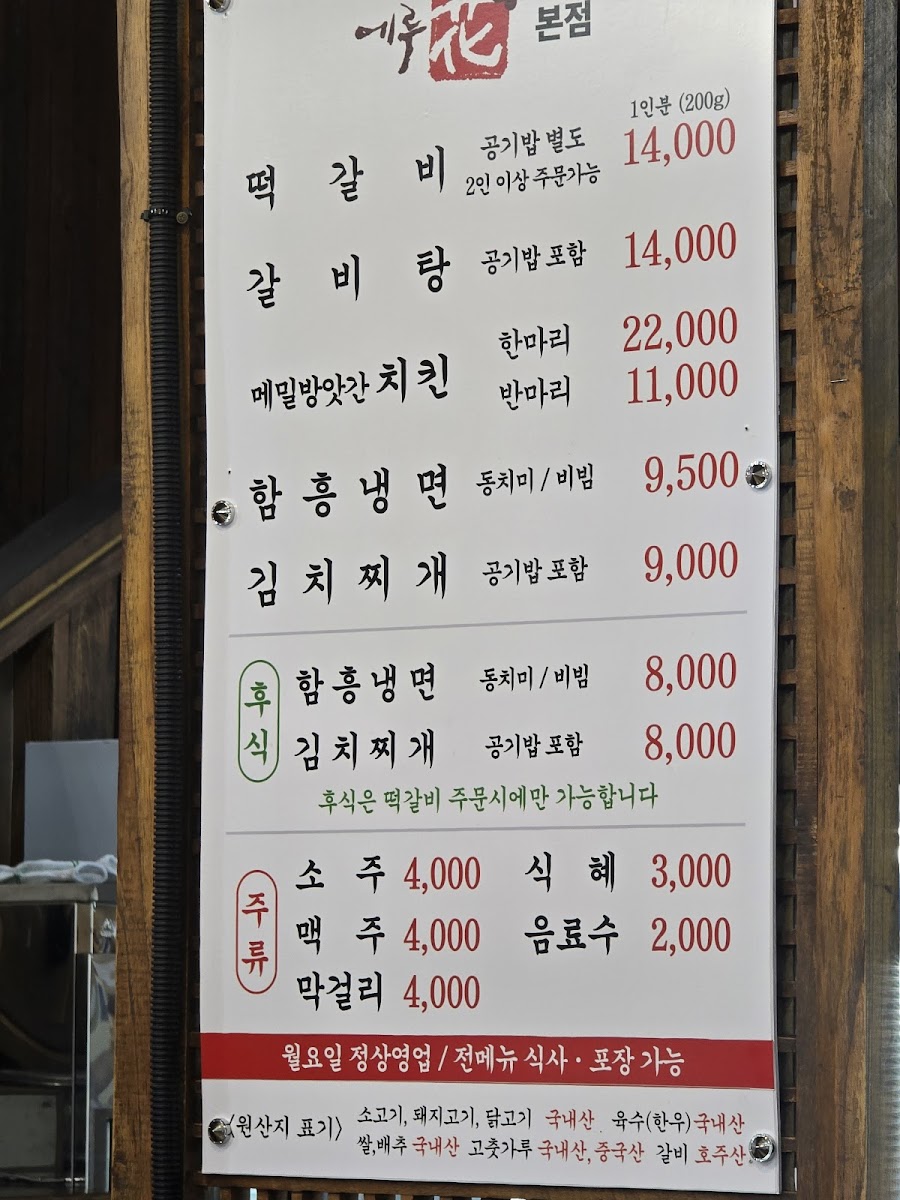 에루花 본점
1인분 (200g)
떡갈비 공기밥 별도 2인 이상 주문가능 14,000
갈비탕 공기밥 포함 14,000
메밀방앗간 치킨 한마리 22,000
반마리 11,000
함흥냉면 동치미 / 비빔 9,500
김치찌개 공기밥 포함 9,000
후식
함흥냉면 동치미 / 비빔 8,000
김치찌개 공기밥 포함 8,000
후식은 떡갈비 주문시에만 가능합니다
주류
소주 4,000 식혜 3,000
맥주 4,000 음료수 2,000
막걸리 4,000
월요일 정상영업 / 전메뉴 식사 · 포장 가능
〈원산지 표기〉 소고기, 돼지고기, 닭고기 국내산 육수(한우) 국내산
쌀,배추 국내산 고춧가루 국내산, 중국산 갈비 호주산